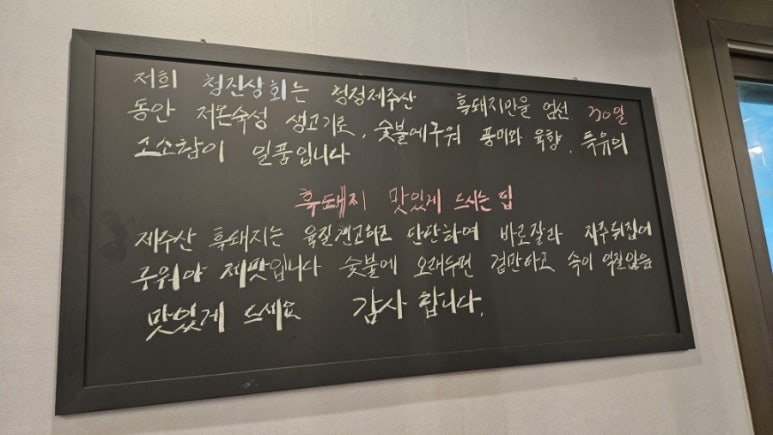 저희 청진상회는 청정제주산 흑돼지만을 엄선 20일
동안 저온숙성 생고기로, 숯불에구워 풍미와 육향. 특유의
고소함이 일품입니다
흑돼지 맛있게 드시는 팁
제주산 흑돼지는 육질 단단하여 바로잘라 자주뒤집어
구워야 제맛입니다 숯불에 오래두면 겉만타고 속이 익질않음
맛있게 드세요 감사 합니다.